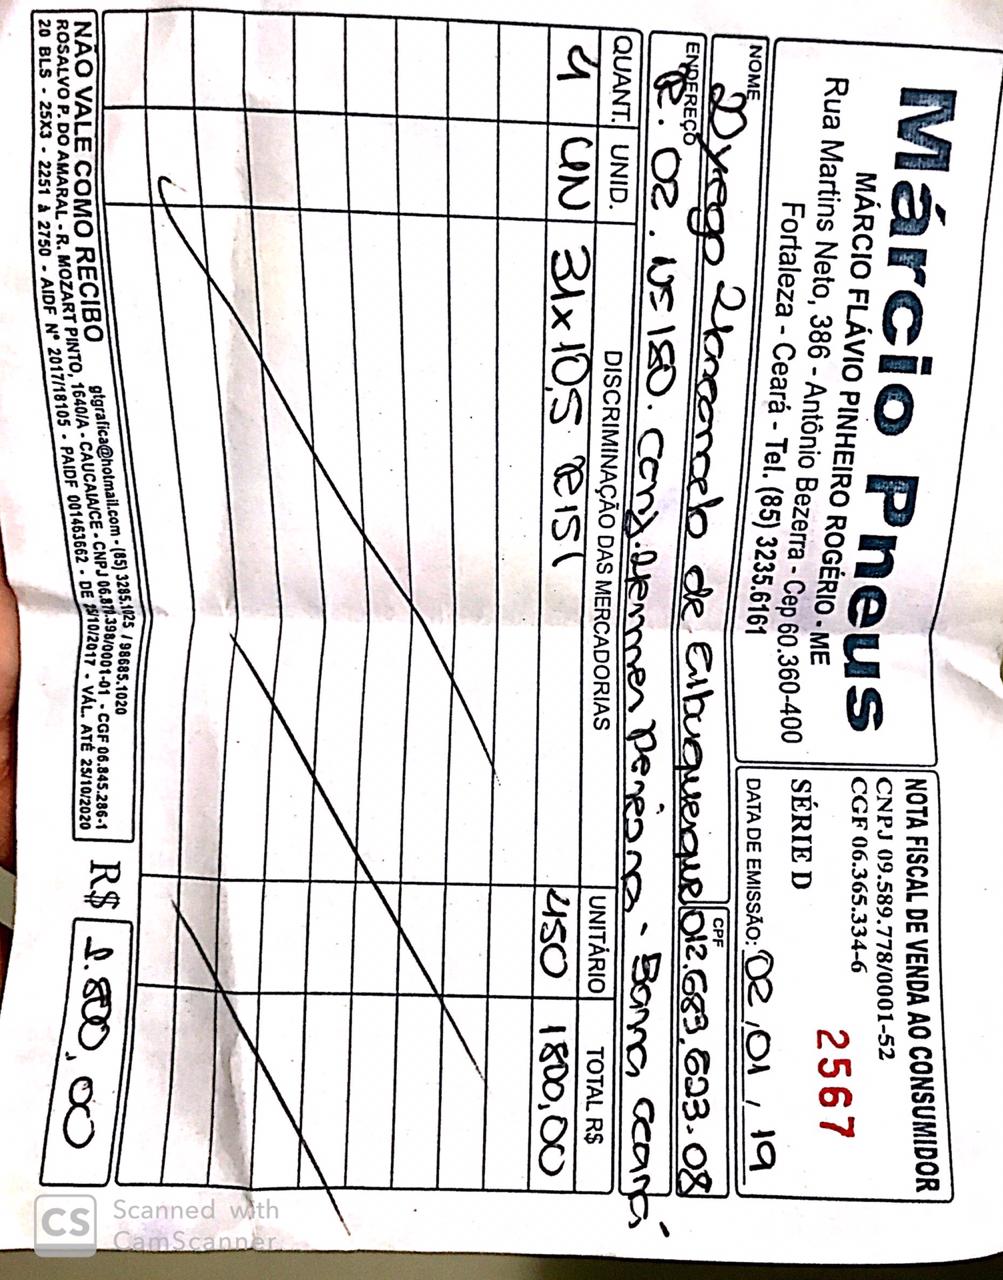 Márcio Pneus
MÁRCIO FLÁVIO PINHEIRO ROGÉRIO - ME
Rua Martins Neto, 386 - Antônio Bezerra - Cep 60.360-400
Fortaleza - Ceará - Tel. (85) 3235.6161
NOTA FISCAL DE VENDA AO CONSUMIDOR
CNPJ 09.589.778/0001-52
CGF 06.365.334-6
SÉRIE D
2567
DATA DE EMISSÃO: 02,01,19
NOME
de Albuquerque
CPF
012.683.623-08
ENDEREÇO
R. 02. Nº 180. Conj. - Barra Ceará
QUANT. UNID. DISCRIMINAÇÃO DAS MERCADORIAS UNITÁRIO TOTAL R$
4 UN 31x10,5 R15 450 1800,00
NÃO VALE COMO RECIBO
gtgrafica@hotmail.com - (85) 3285.1025 / 98685.1020
ROSALVO P. DO AMARAL - R. MOZART PINTO, 1640/A - CAUCAIA/CE - CNPJ 06.871.398/0001-01 - CGF 06.845.286-1
20 BLS - 25X3 - 2251 à 2750 - AIDF Nº 2017/18105 - PAIDF 001463662 - DE 25/10/2017 - VÁL. ATÉ 25/10/2020
R$ 1.800,00
CS Scanned with
CamScanner